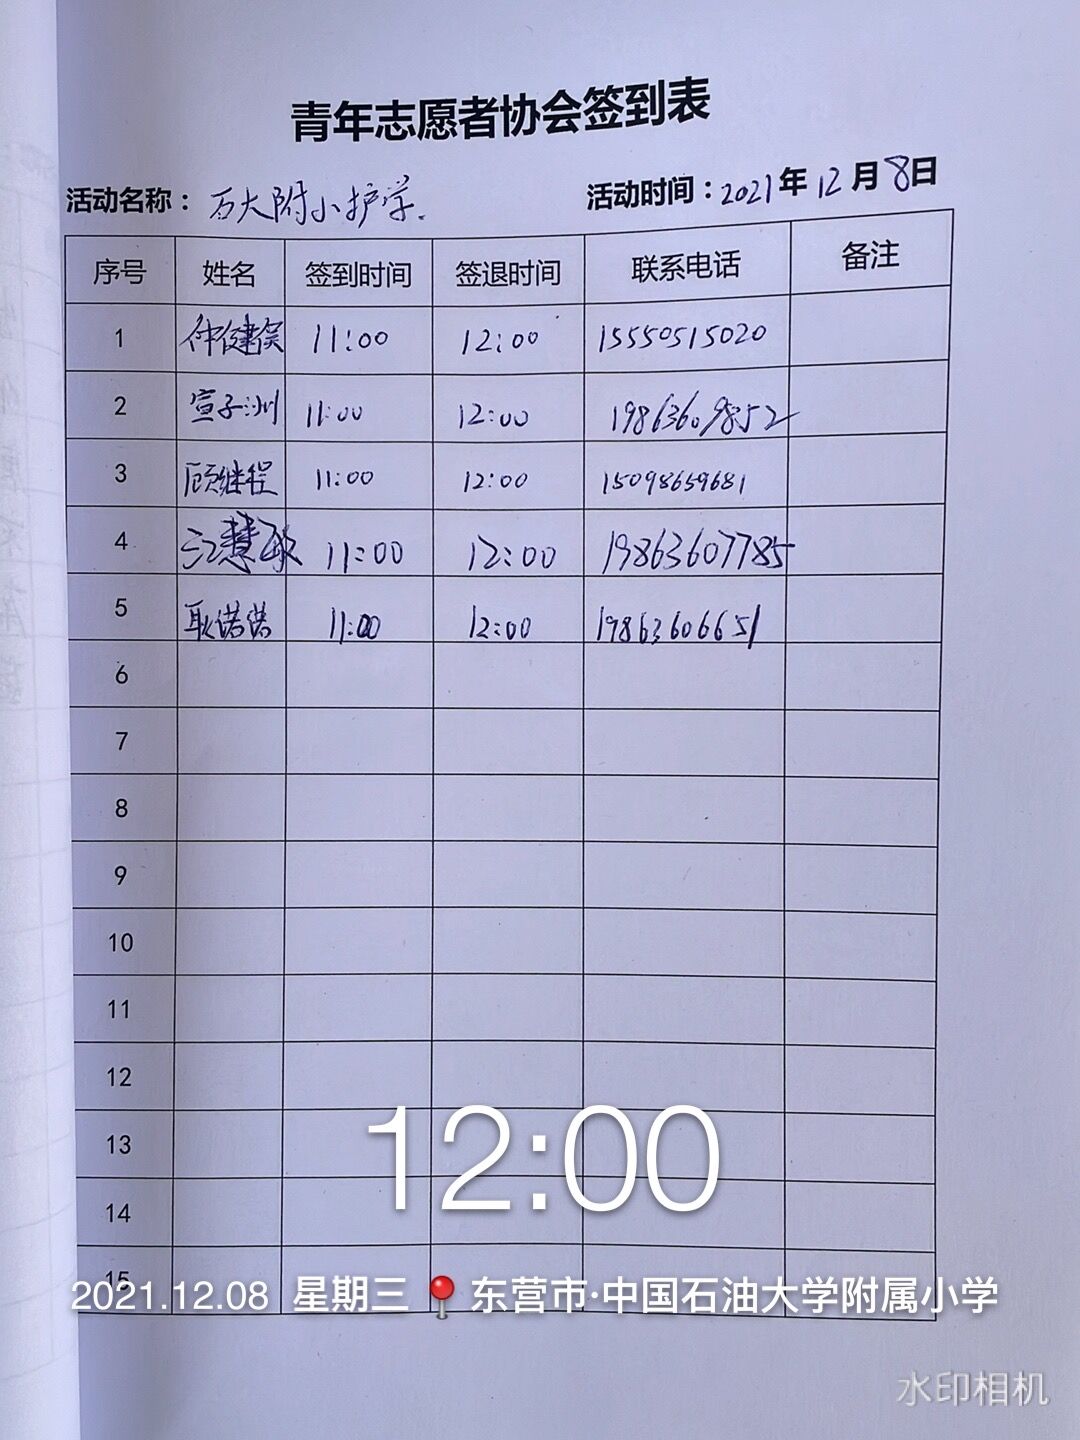 青年志愿者协会签到表
活动名称：石大附小护学. 活动时间：2021年12月8日
序号 姓名 签到时间 签退时间 联系电话 备注
1 仲健俣 11:00 12:00 15550515020
2 宣子洲 11:00 12:00 19863609852
3 顾继程 11:00 12:00 15098659681
4 江慧敏 11:00 12:00 19863607785
5 耿偌偌 11:00 12:00 19863606651
6
7
8
9
10
11
12
13
12:00
14
15
2021.12.08 星期三 东营市·中国石油大学附属小学
水印相机